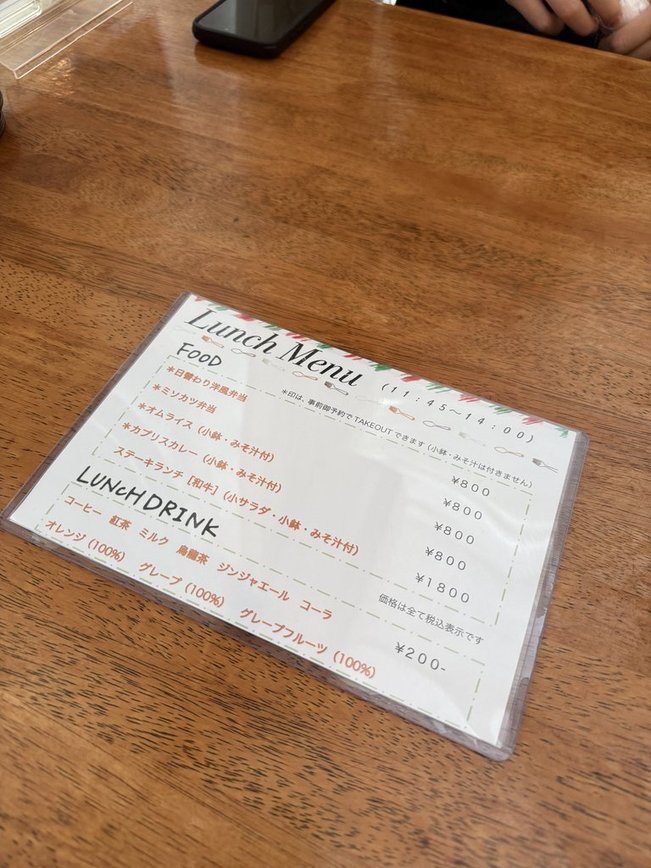 Lunch Menu (11:45〜14:00)
FOOD
※印は、事前御予約でTAKEOUTできます(小鉢・みそ汁は付きません)
＊日替わり洋風弁当 ¥800
＊ミソカツ弁当 ¥800
＊オムライス(小鉢・みそ汁付) ¥800
＊カプリスカレー(小鉢・みそ汁付) ¥800
ステーキランチ[和牛](小サラダ・小鉢・みそ汁付) ¥1800
価格は全て税込表示です
LUNCH DRINK
コーヒー 紅茶 ミルク 烏龍茶 ジンジャエール コーラ ¥200-
オレンジ(100%) グレープ(100%) グレープフルーツ(100%)